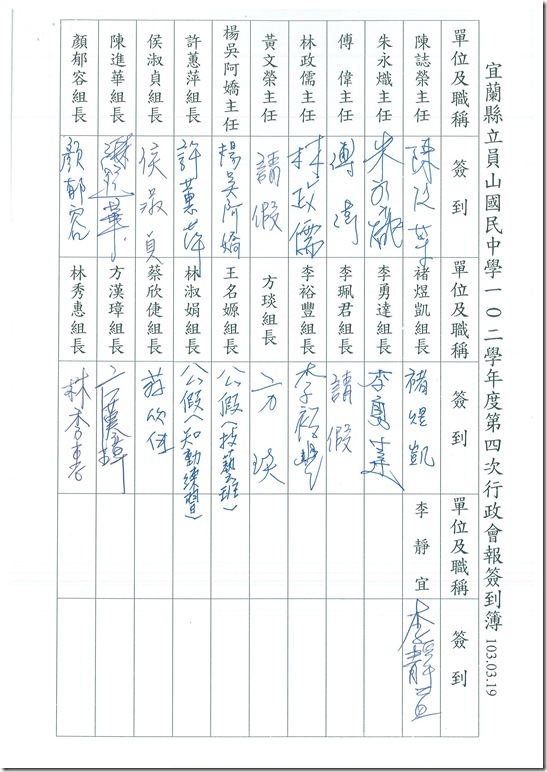 宜蘭縣立員山國民中學一０二學年度第四次行政會報簽到簿 103.03.19
單位及職稱 簽到 單位及職稱 簽到 單位及職稱 簽到
陳誌榮主任 褚煜凱組長 褚煜凱 李靜宜 李靜宜
朱永熾主任 朱永熾 李勇達組長 李勇達
傅偉主任 傅偉 李珮君組長 請假
林政儒主任 林政儒 李裕豐組長 李裕豐
黃文榮主任 請假 方琰組長 方琰
楊吳阿嬌主任 楊吳阿嬌 王名嫄組長 公假(技藝班)
許蕙萍組長 許蕙萍 林淑娟組長 公假(知動練習)
侯淑貞組長 侯淑貞 蔡欣倢組長 蔡欣倢
陳進華組長 陳進華 方漢璋組長 方漢璋
顏郁容組長 顏郁容 林秀惠組長 林秀惠